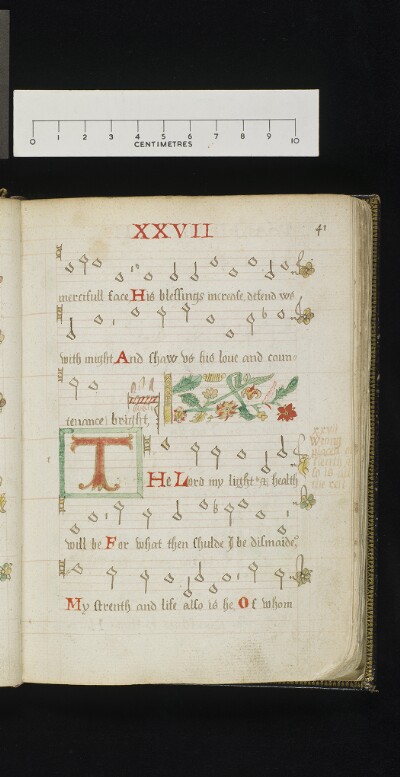 0 1 2 3 4 5 6 7 8 9 10
CENTIMETRES
XXVII
41
mercifull face His blessings increase, defend vs
with might And shaw vs his loue and coun-
tenance bright
THe Lord my light & health
will be For what then shulde I be dismaide?
My strenth and life also is he Of whom
xxvii